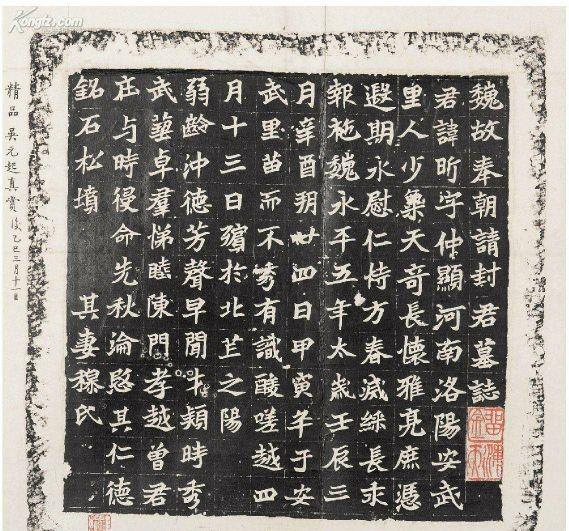 Kongfz.com
魏故奉朝請封君墓誌
君諱昕字仲顯河南洛陽安武
里人少稟天奇長懷雅亮庶憑
遐期永慰仁恃方春滅綵長
報施魏永平五年太歲壬辰三
月辛酉朔廿四日甲寅卒于安
武里苗而不秀有識酸嗟越四
月十三日殯於北芒之陽
弱齡沖德芳聲早聞才穎時秀
武藝卓羣悌睦陳門孝越曾君
与時侵命先秋淪愍其仁德
銘石松墳 其妻穆氏
精品 吳元起真賞 後乙巳三月十一日